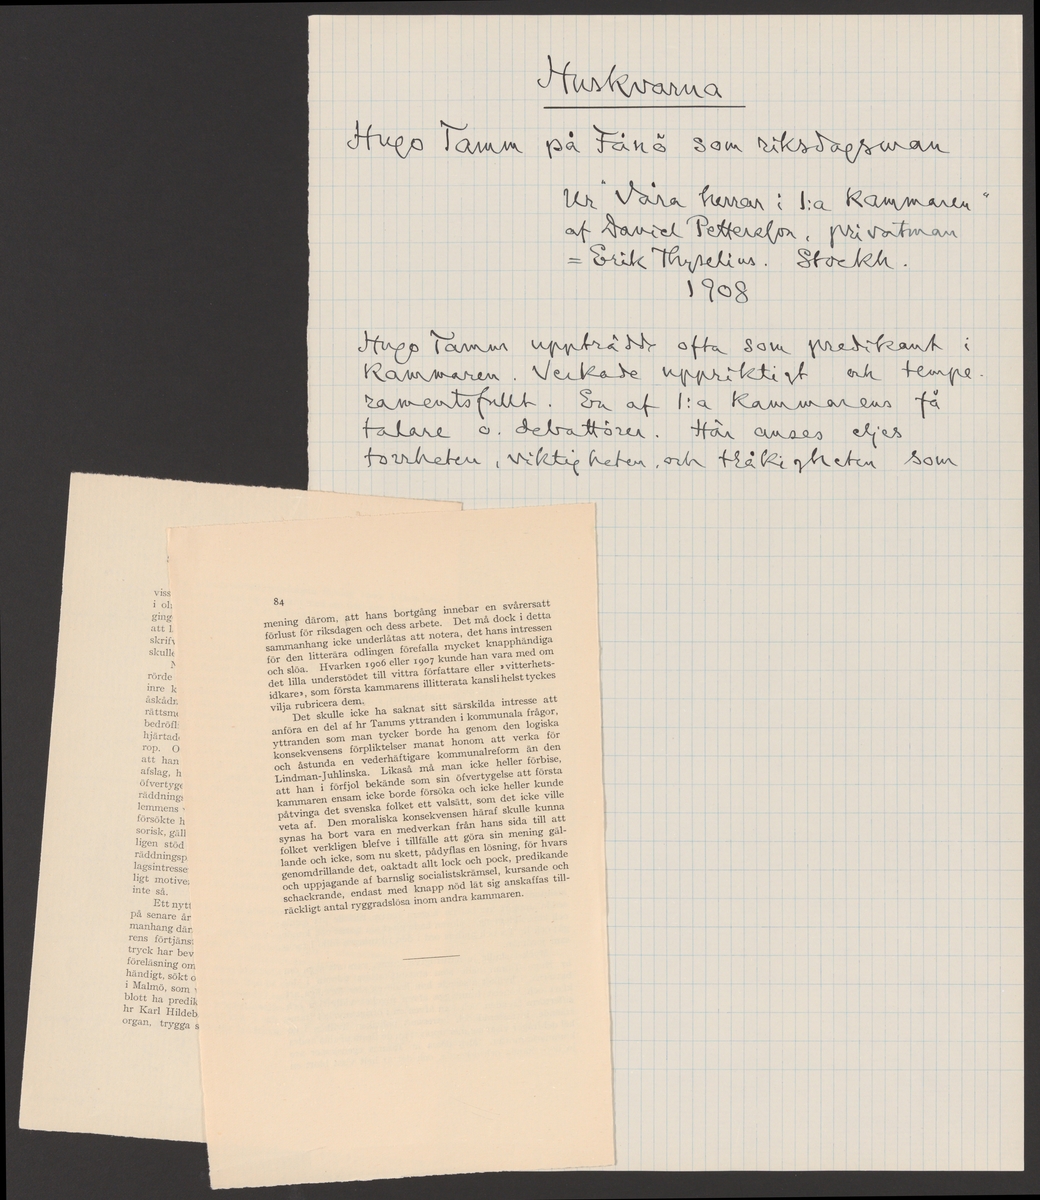 Huskvarna
Hugo Tamm på Fånö som riksdagsman
Ur "Våra herrar i 1:a Kammaren"
af David Pettersson, privatman
= Erik Thyselius. Stockh.
1908
Hugo Tamm uppträdde ofta som predikant i
Kammaren. Verkade uppriktigt och tempe-
ramentsfullt. En af 1:a Kammarens få
talare o. debattörer. Här anses eljes
torrheten, viktigheten, och tråkigheten som
viss
i oli
ging
att l
skrifv
skulle
N
rörde
inre k
åskådn
rättsme
bedröfl
hjärtade
rop. O
att han
afslag, h
öfvertyge
räddnings
lemmens
försökte h
sorisk, gäll
ligen stöd
räddningsp
lagsintresse
ligt motive
inte så.
Ett nytt
på senare år
manhang där
rens förtjäns
tryck har bev
föreläsning om
händigt, sökt o
i Malmö, som
blott ha predik
hr Karl Hildeb
organ, trygga s
84
mening därom, att hans bortgång innebar en svårersatt
förlust för riksdagen och dess arbete. Det må dock i detta
sammanhang icke underlåtas att notera, det hans intressen
för den litterära odlingen förefalla mycket knapphändiga
och slöa. Hvarken 1906 eller 1907 kunde han vara med om
det lilla understödet till vittra författare eller »vitterhets-
idkare», som första kammarens illitterata kansli helst tyckes
vilja rubricera dem.
Det skulle icke ha saknat sitt särskilda intresse att
anföra en del af hr Tamms yttranden i kommunala frågor,
yttranden som man tycker borde ha genom den logiska
konsekvensens förpliktelser manat honom att verka för
och åstunda en vederhäftigare kommunalreform än den
Lindman-Juhlinska. Likaså må man icke heller förbise,
att han i förfjol bekände som sin öfvertygelse att första
kammaren ensam icke borde försöka och icke heller kunde
påtvinga det svenska folket ett valsätt, som det icke ville
veta af. Den moraliska konsekvensen häraf skulle kunna
synas ha bort vara en medverkan från hans sida till att
folket verkligen blefve i tillfälle att göra sin mening gäl-
lande och icke, som nu skett, pådyflas en lösning, för hvars
genomdrillande det, oaktadt allt lock och pock, predikande
och uppjagande af barnslig socialistskrämsel, kursande och
schackrande, endast med knapp nöd lät sig anskaffas till-
räckligt antal ryggradslösa inom andra kammaren.